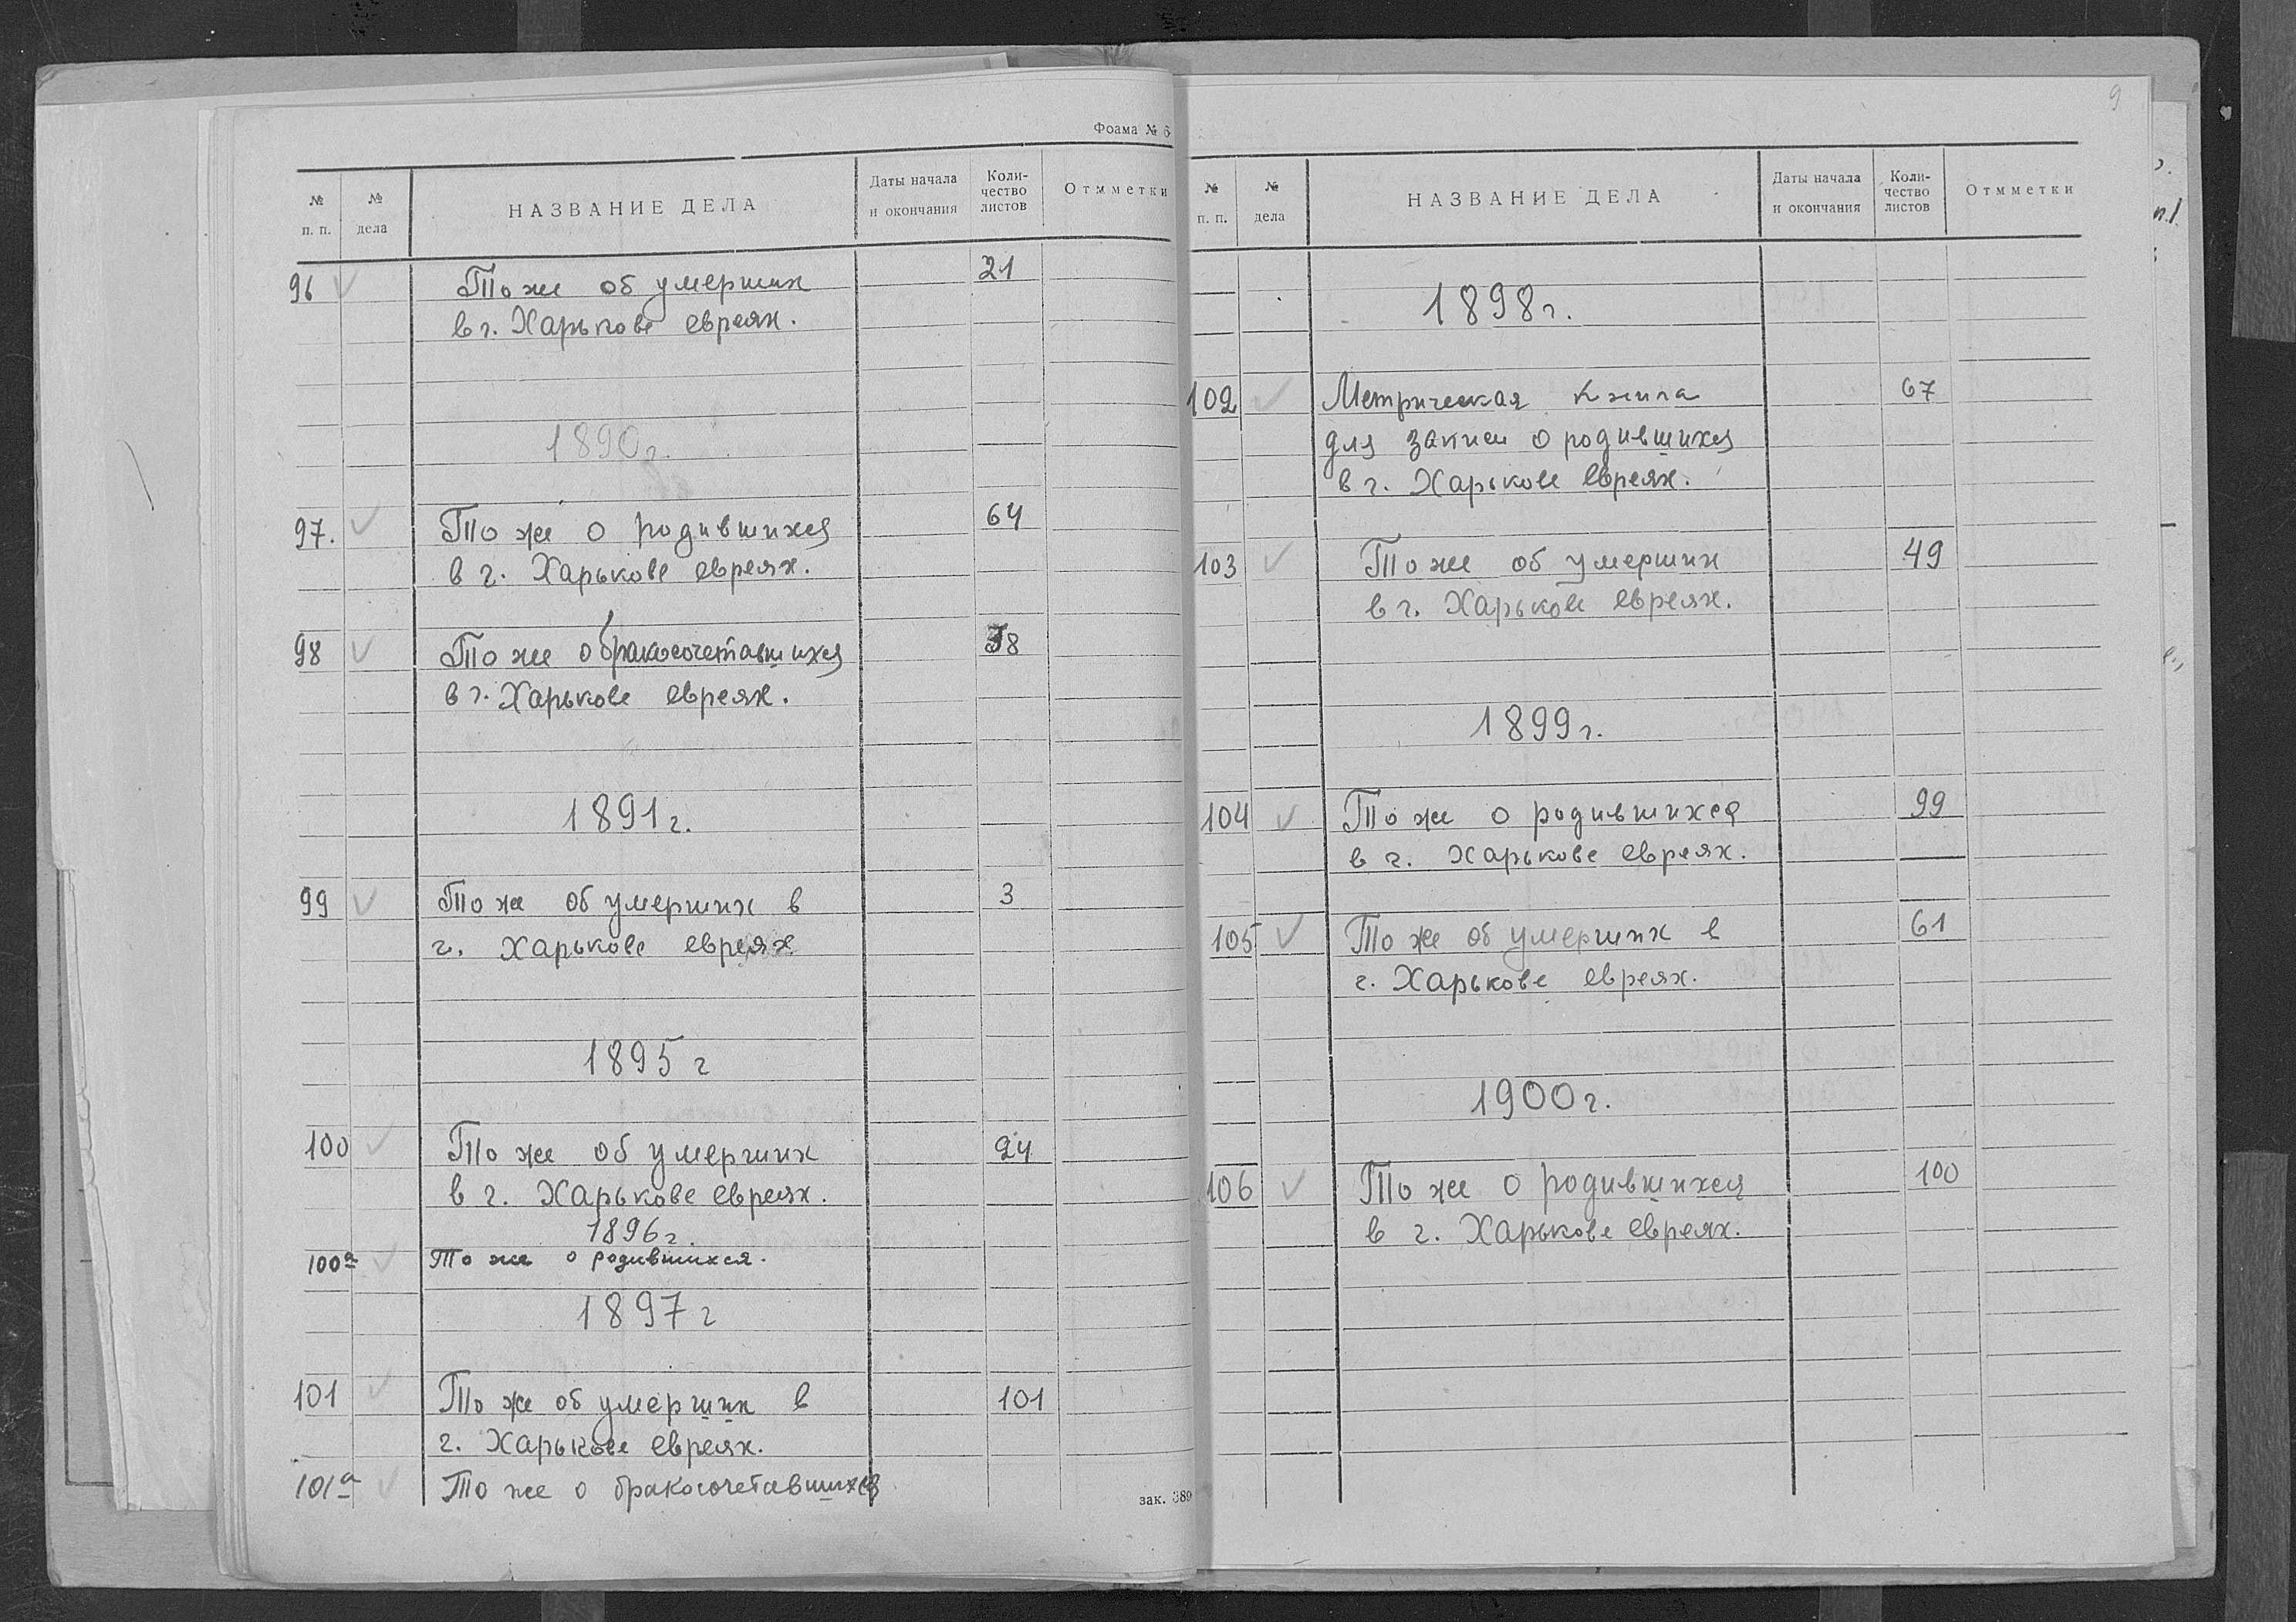 Фоама № 6
№ п. п.
№ дела
НАЗВАНИЕ ДЕЛА
Даты начала и окончания
Коли-
чество
листов
Отмметки
96 То же об умерших 21
в г. Харькове евреях.
1890 г.
97. То же о родившихся 64
в г. Харькове евреях.
98 То же о бракосочетавшихся 38
в г. Харькове евреях.
1891 г.
99 То же об умерших в 3
г. Харькове евреях
1895 г
100 То же об умерших 24
в г. Харькове евреях.
1896 г.
100а То же о родившихся.
1897 г
101 То же об умерших в 101
г. Харькове евреях.
101а То же о бракосочетавшихся
зак. 389
9
№ п. п.
№ дела
НАЗВАНИЕ ДЕЛА
Даты начала и окончания
Коли-
чество
листов
Отмметки
1898 г.
102 Метрическая книга 67
для записи о родившихся
в г. Харькове евреях.
103 То же об умерших 49
в г. Харькове евреях.
1899 г.
104 То же о родившихся 99
в г. Харькове евреях.
105 То же об умерших в 61
г. Харькове евреях.
1900 г.
106 То же о родившихся 100
в г. Харькове евреях.